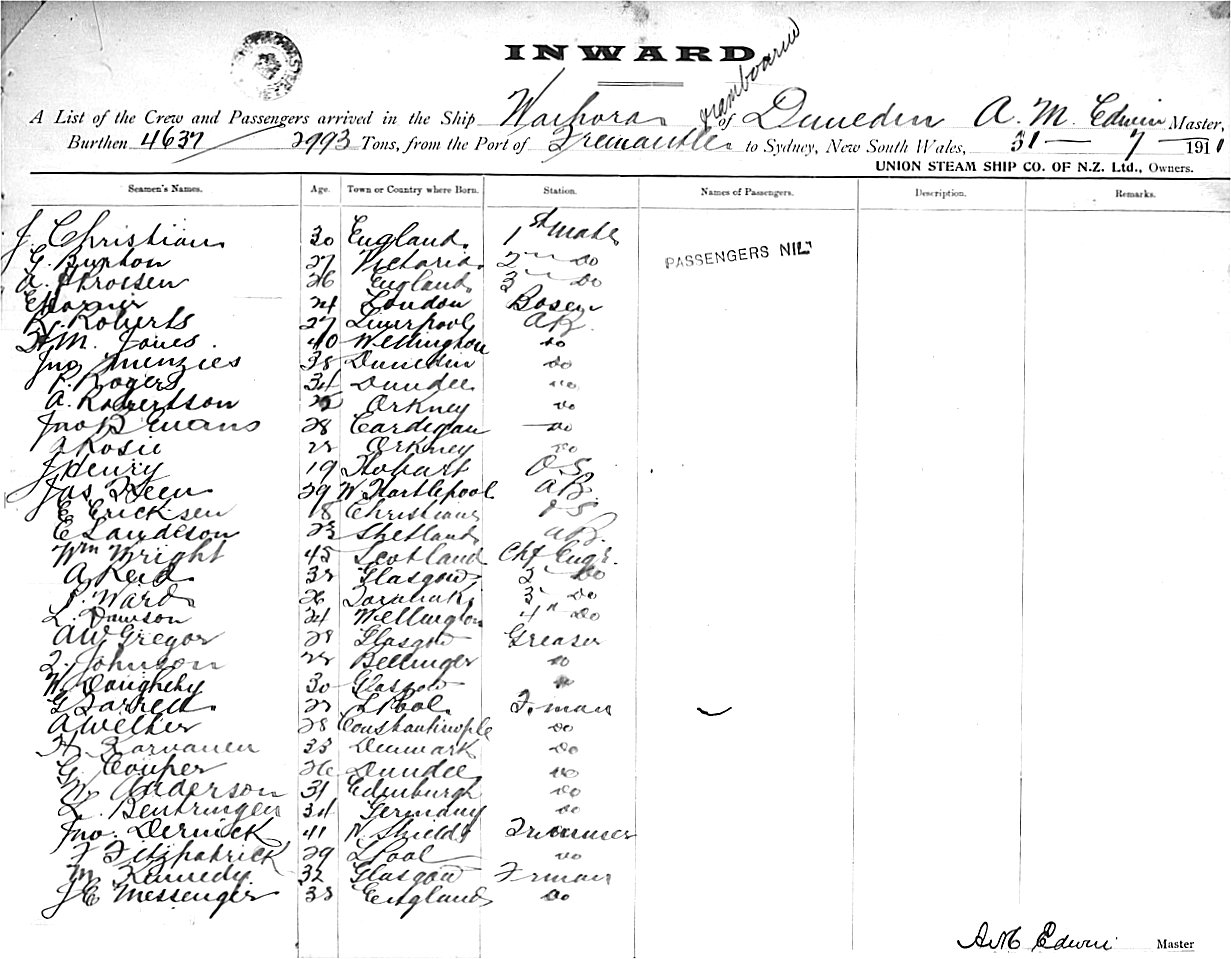 INWARD
A List of the Crew and Passengers arrived in the Ship Waihora of Dunedin A. M. Edwin Master,
Burthen 4637 / 2993 Tons, from the Port of Fremantle to Sydney, New South Wales, 31 — 7 — 1911
UNION STEAM SHIP CO. OF N.Z. Ltd., Owners.
Seamen's Names. Age. Town or Country where Born. Station. Names of Passengers. Description. Remarks.
J. Christian 30 England 1st Mate
PASSENGERS NIL
G. Burton 27 Victoria 2nd Do
A. Throssen 26 England 3 Do
24 London Bosen
R. Roberts 27 Liverpool AB
H. M. Jones. 40 Wellington Do
Jno Menzies 38 Dunedin Do
P. Rogers 34 Dundee Do
A. Robertson Orkney Do
Jno B Evans 28 Cardigan Do
Rosie Orkney Do
J Henry 19 Hobart OS
Jas 29 W Hartlepool AB
E Ericksen 18 Christiana OS
E Laudeson 23 Shetland AB.
Wm Wright 45 Scotland Chf Engr.
A Reid Glasgow 2 Do
Ward 26 Taranaki 3 Do
L. Dawson 24 Wellington 4th Do
AW Gregor Glasgow Greaser
Johnson Bellinger Do
W. Doughety 30 Glasgow
G L Pool F.man
A Welker 28 Constantinople Do
Karvanen 33 Denmark Do
G. Couper 26 Dundee Do
W. Anderson 31 Edinburgh Do
L. Bentringer 34 Germany Do
Jno. Dernick 41 N. Shields Trimmer
F Fitzpatrick 29 L Pool Do
M. Kennedy 32 Glasgow F man
J E Messenger 38 England Do
A M Edwin Master